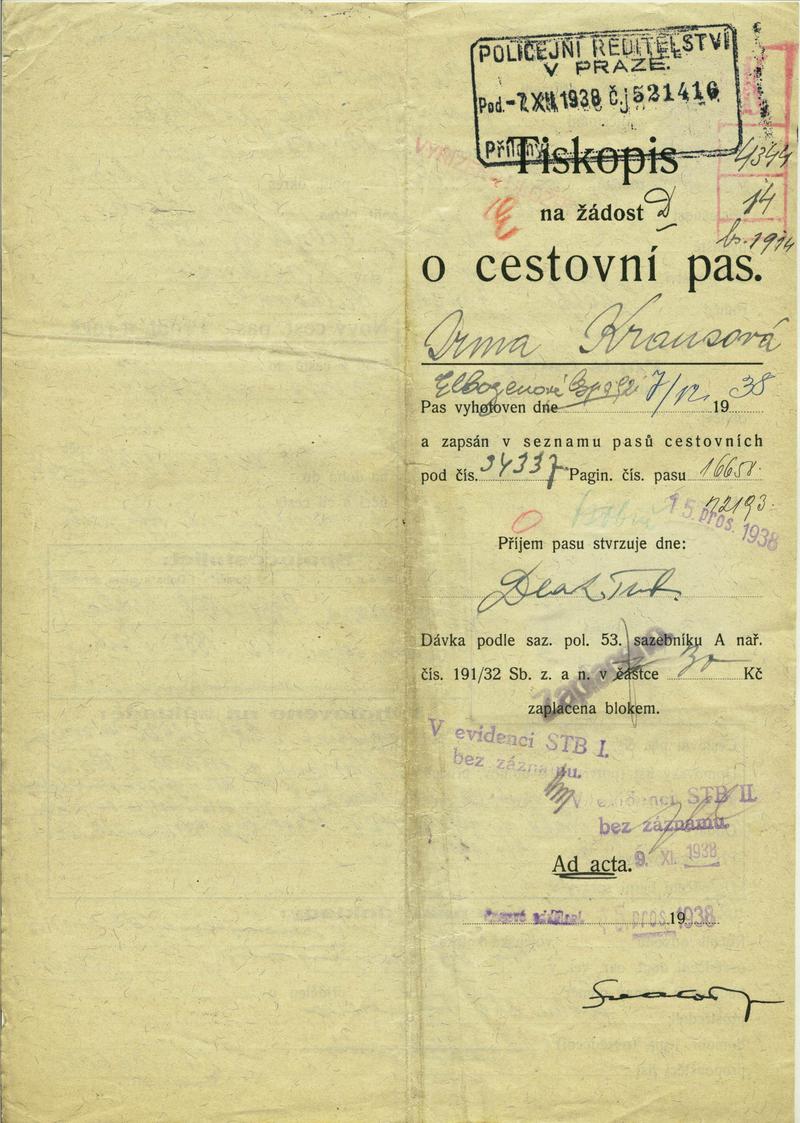 POLICEJNÍ ŘEDITELSTVÍ
V PRAZE.
Pod. -7.XII.1938 Čj 521416
Přílohy
Tiskopis
4344
na žádost D
14
br. 1914
o cestovní pas.
Irma Krausová
Elbogenová
Pas vyhotoven dne 7/12. 1938
a zapsán v seznamu pasů cestovních
pod čís. 34337 Pagin. čís. pasu 16658.
12193.
15. pros. 1938
Příjem pasu stvrzuje dne:
Dávka podle saz. pol. 53. sazebníku A nař.
čís. 191/32 Sb. z. a n. v částce 30 Kč
Zaplaceno
zaplacena blokem.
V evidenci STB I.
bez záznamu.
V evidenci STB II.
bez záznamu.
9. XI. 1938
Ad acta.
pros. 1938
19